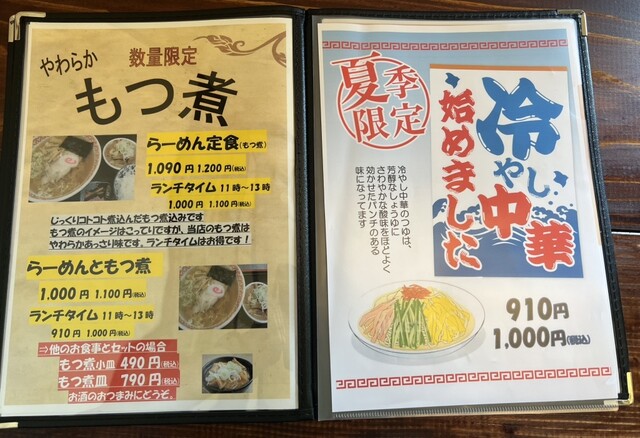 やわらか
数量限定
もつ煮
らーめん定食(もつ煮)
1.090円 1.200円(税込)
ランチタイム 11時〜13時
1.000円 1.100円(税込)
じっくりコトコト煮込んだもつ煮込みです
もつ煮のイメージはこってりですが、当店のもつ煮は
やわらかあっさり味です。ランチタイムはお得です!
らーめんともつ煮
1.000円 1.100円(税込)
ランチタイム 11時〜13時
910円 1.000円(税込)
⇒他のお食事とセットの場合
もつ煮小皿 490円(税込)
もつ煮皿 790円(税込)
お酒のおつまみにどうぞ。
夏季
限定
冷やし
中華
始めました
冷やし中華のつゆは、
芳醇なしょうゆに
さわやかな酸味をほどよく
効かせたパンチのある
味になってます
910円
1,000円(税込)